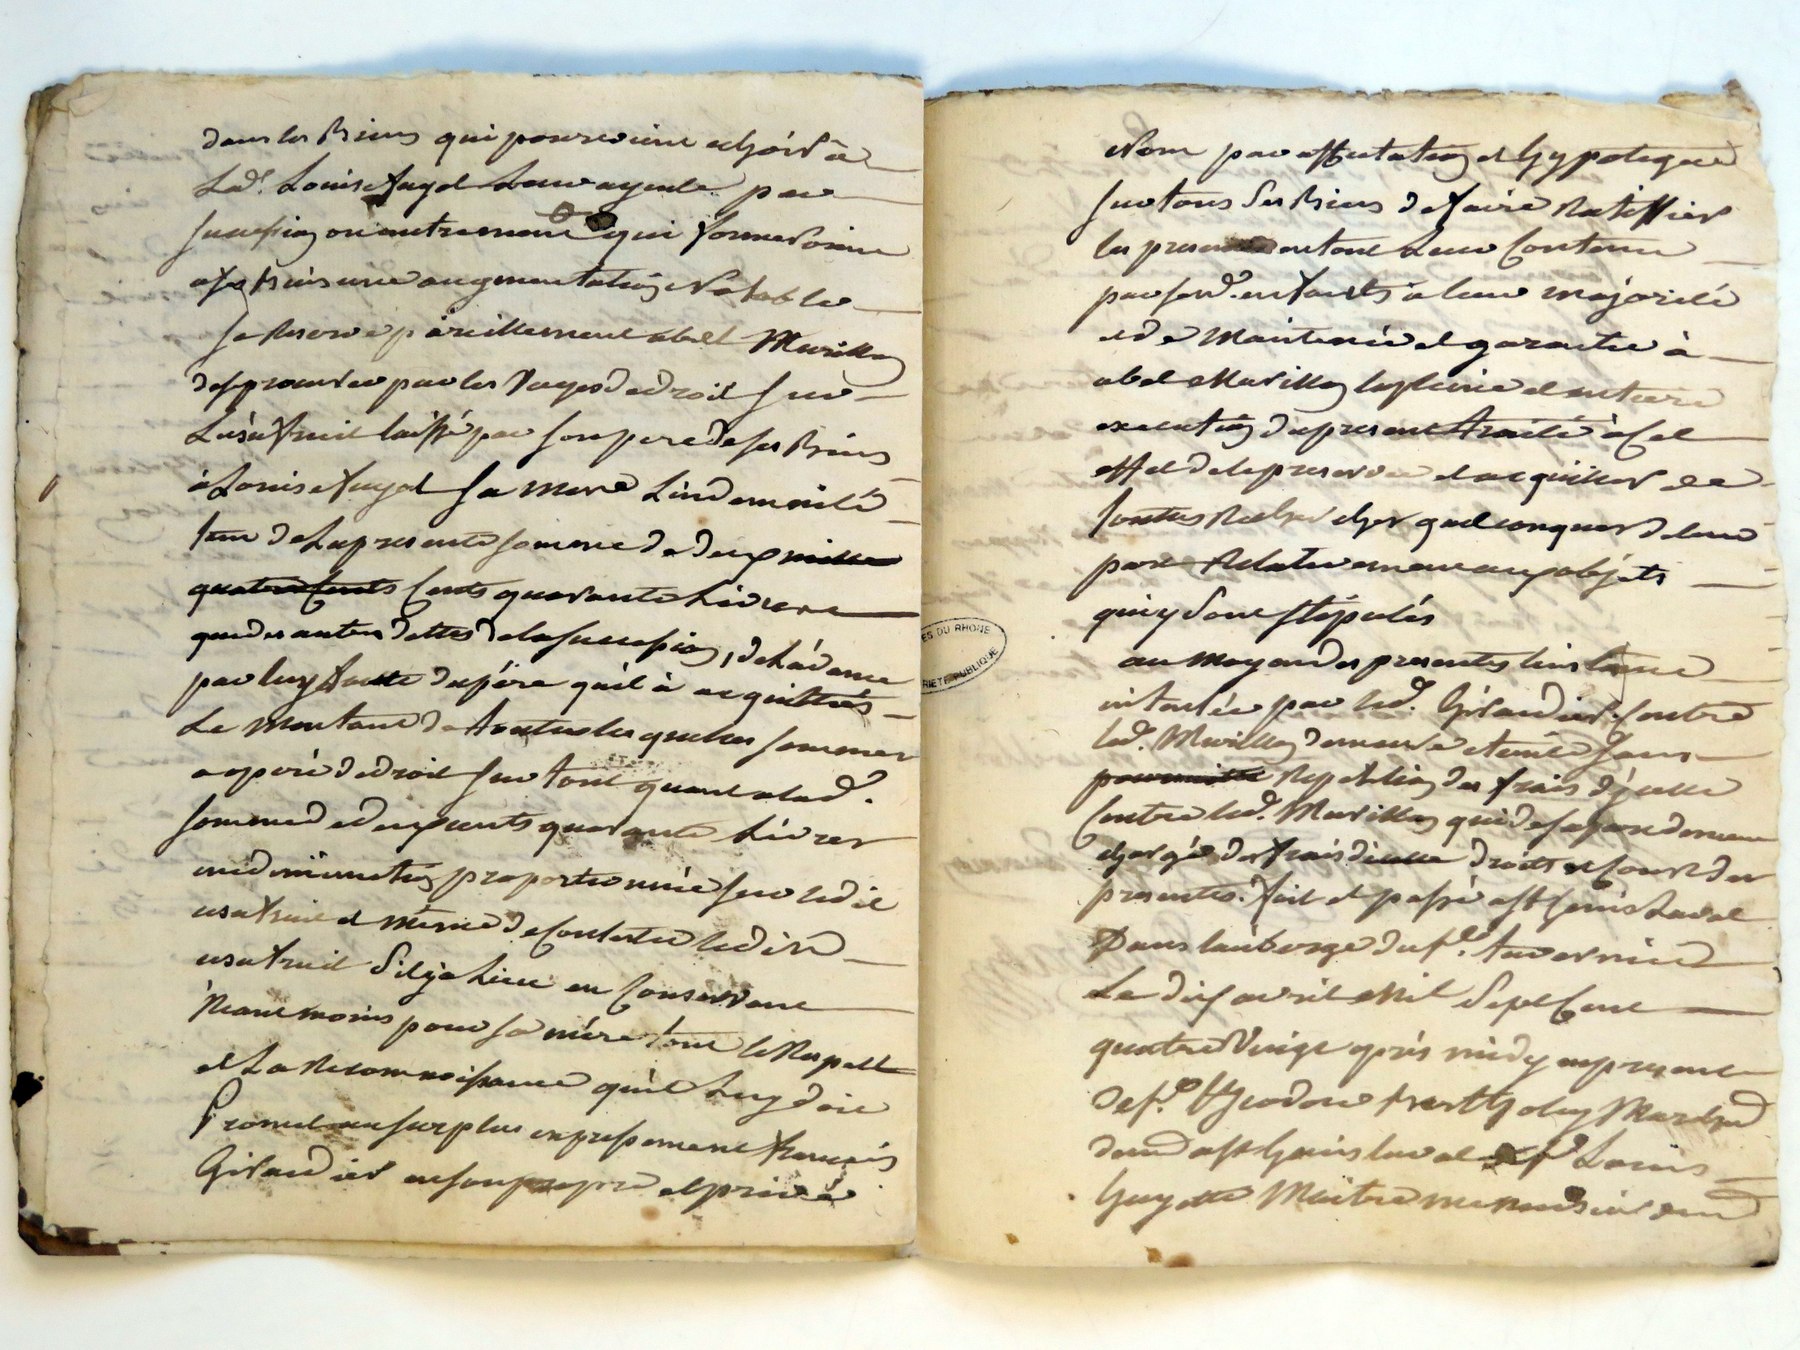 dans les Biens qui pouroient echoir à
lad. Louise fayol leur ayeule par
succession ou autrement qui formeroient
une augmentation Notable
se Reserve pareillement abel Marillon
de se pourvoir par les Voyes de droit sur
L'usufruit laissé par son pere de ses Biens
à Louise fayol sa mere L'indemnité
de La presente somme de deux mille
quatre Cents Cents quarante Livres
que des autres dettes de la succession, de
par luy du père qu'il à acquittés
Le Montant de toutes les quelles sommes
de droit sur tout quant a lad.
somme de deux cents quarante Livres
une diminution proportionnée sur ledit
usufruit et même de Contester ledit
usufruit S'il y a Lieu en Conservant
Neantmoins pour sa mère tout le Respect
et La Reconnoissance qu'il Luy doit
Promet au surplus expressement françois
Girardier en son propre et privé
Nom par affectation et hypoteque
sur tous ses Biens de faire Ratiffier
les presentes en tout leur Contenu
par sesd. enfants à leur majorité
et de Maintenir et garantir à
abel Marillon la pleine et entiere
execution du present traité à cet
effet de le preserver et acquitter de
toutes Recherches quelconques de leur
part Relativement aux objets
qui y sont stipulés
au moyen des presentes l'instance
intentée par led. Girardier Contre
led. Marillon demeure eteinte sans
poursuitte Repetition des frais d'jcelle
Contre led. Marillon qui de sa part demeure
chargé des frais d'icelle droits et Cout des
presentes. fait et passé a St Genis Laval
Dans lauberge du sr. tavernier
Le dix avril Mil Sept Cent
quatre Vingt après midy en presence
de sr. theodore Bertholley Marchand
demt a St Genis laval et sr Louis
Guyotte Maitre menuisier demt
ES DU RHONE
RIETE PUBLIQUE